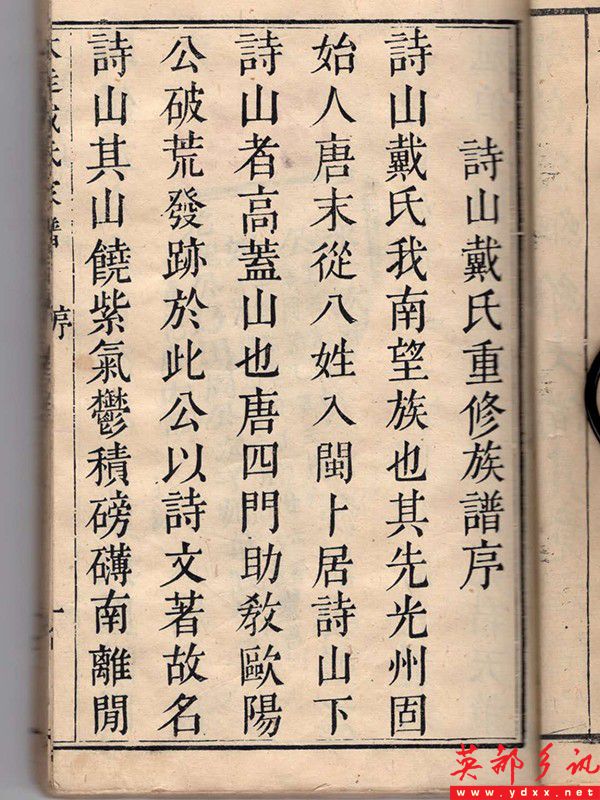 詩山戴氏重修族譜序
詩山戴氏我南望族也其先光州固
始人唐末從八姓入閩卜居詩山下
詩山者高蓋山也唐四門助教歐陽
公破荒發跡於此公以詩文著故名
詩山其山饒紫氣鬱積磅礴南離閒
氏家譜
序
英都乡讯
www.ydxx.net